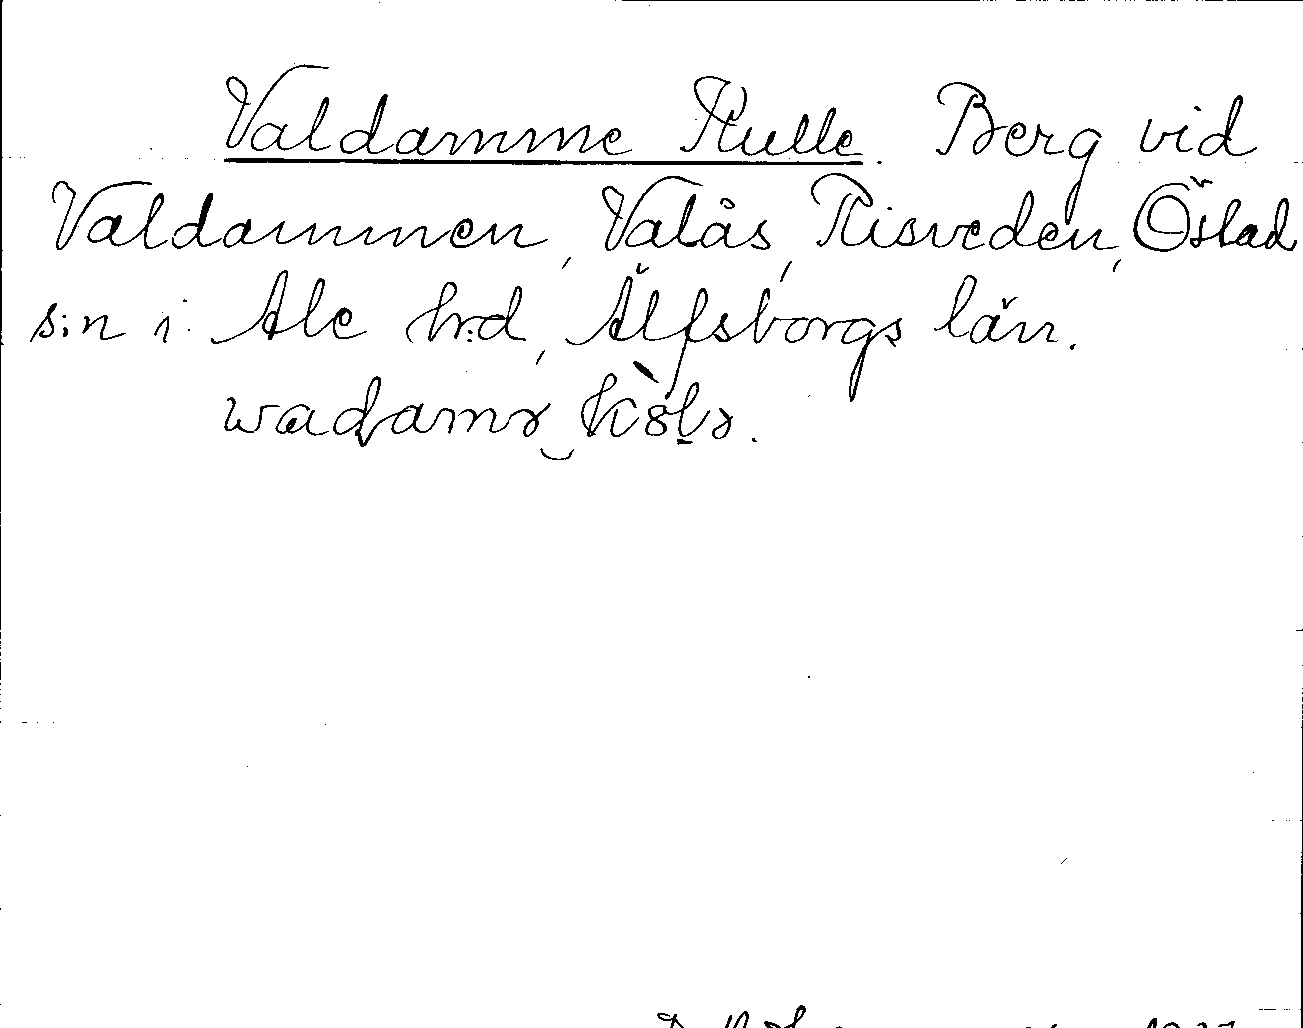 Valdamme Kulle. Berg vid
Valdammen, Valås, Risveden, Östad
s:n i Ale h:d, Älfsborgs län.